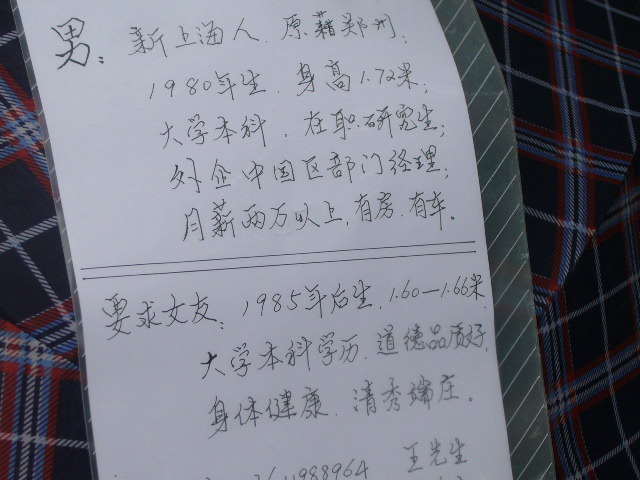 男：新上海人、原籍郑州，
1980年生、身高1.72米；
大学本科、在职研究生；
外企中国区部门经理；
月薪两万以上，有房、有车。
要求女友：1985年后生、1.60—1.66米
大学本科学历、道德品质好，
身体健康、清秀端庄。
11988964 王先生